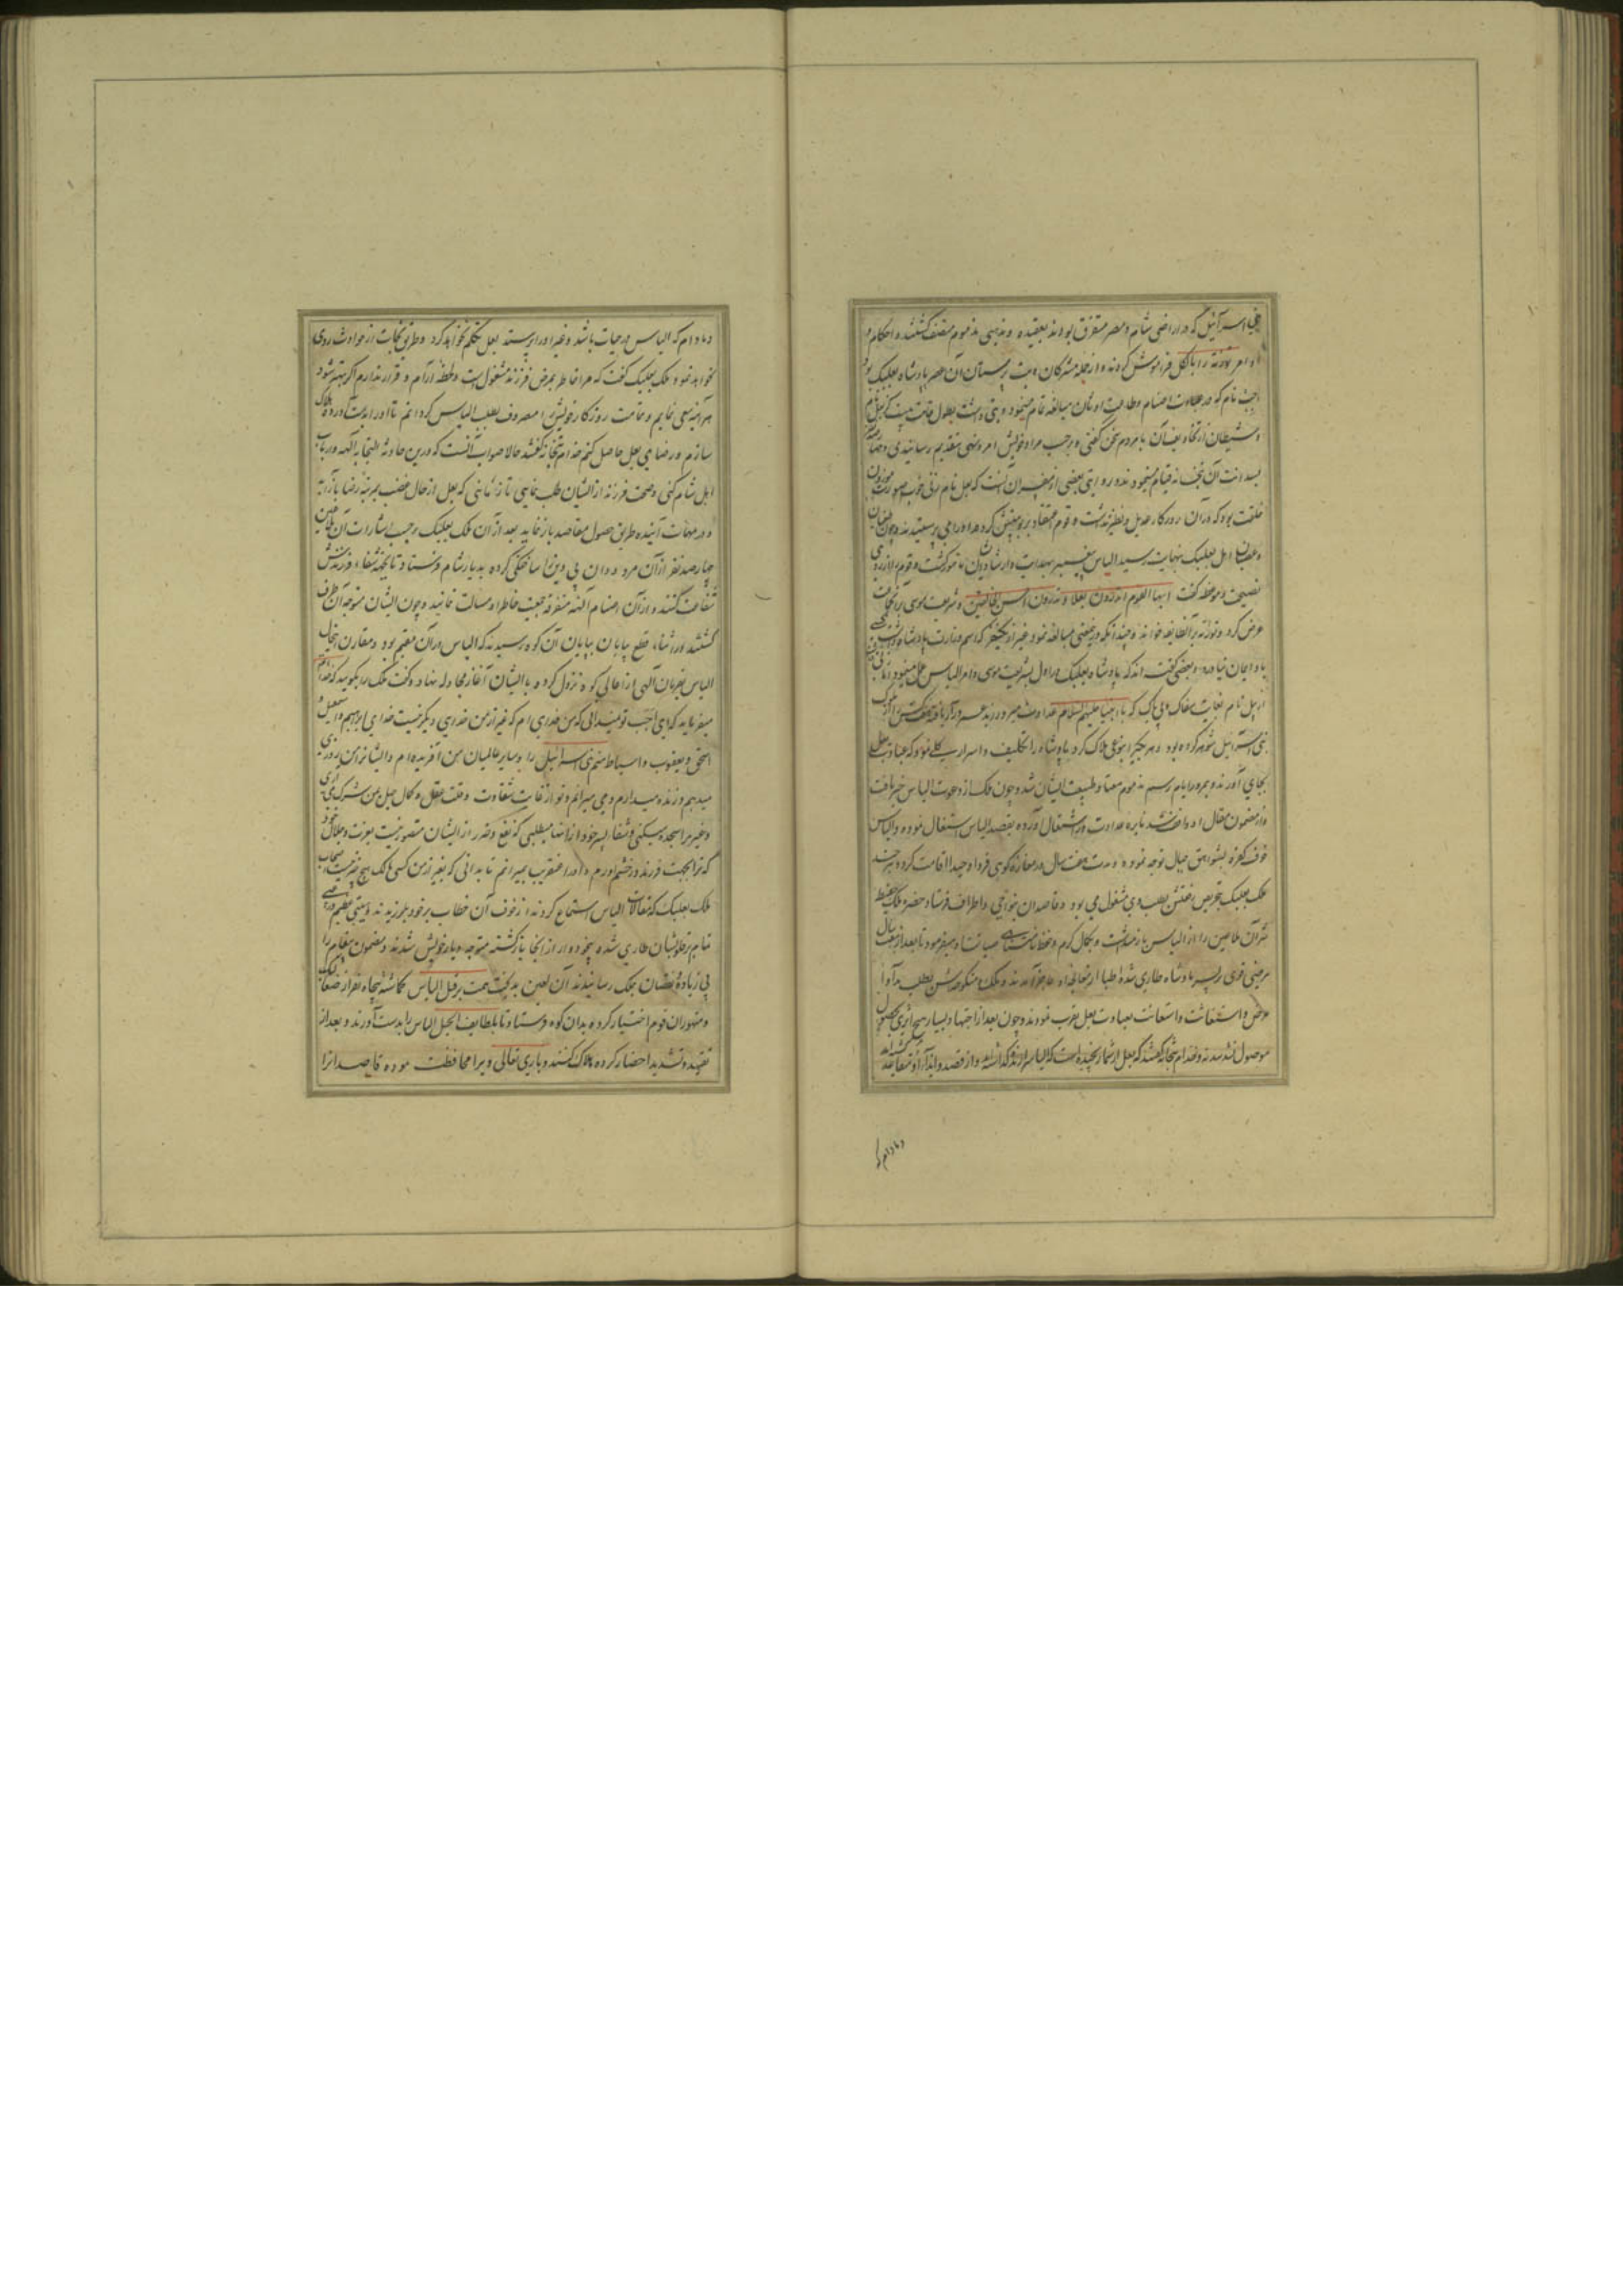 بنی اسرائیل که در اراضی شام و مصر متفرق بودند بعقیده و مذهبی مذموم متصف گشتند و احکام و
اوامر توریة را بالکل فراموش کردند و از جمله مشرکان و بت پرستان آن عصر پادشاه بعلبک بود
اجب نام که در عبادت اصنام و طاعت اوثان مبالغه تمام مینمود و بتی داشت بطول قامت بیست گز بعل نام
و شیطان از نگاه بفغان با مردم سخن گفتی و بر حسب مراد خویش امر و نهی بتقدیم رسانیدی و
بسدانت آن بتخانه قیام مینمودند و روایتی بعضی از مفسران آنست که بعل نام زنی خوب صورت موزون
خلقت بود که در آن روزگار عدیل و نظیر نداشت و قوم اعتقاد بربوبیتش کرده او را می پرستیدند و چون طغیان
و عصیان اهل بعلبک بنهایت رسید الیاس پیغمبر بهدایت و ارشاد ایشان مامور گشت و قوم را از روی
نصیحت و موعظه گفت ایها القوم اتدعون بعلا و تذرون احسن الخالقین و شریعت موسی را بر آنجماعت
عرض کرد و توریة بر آنطایفه خواند و چندانکه در نصیحت مبالغه نمود غیر از یکنفر که اسم وزارت پادشاه داشت کسی
باو ایمان نیاورد و بعضی گفته اند که پادشاه بعلبک در اول بشریعت موسی و امر الیاس عمل مینمود زنی
ازبیل نام بغایت سفاک و بی باک که با انبیا علیهم السلام عداوت میورزید
بنی اسرائیل شوهر کرده بود و هر یکی را بنوعی هلاک کرد پادشاه را تکلیف و اسرار بسیار نمود که عبادت بعل
بجای آورند و بمرور ایام رسم مذموم معتاد طبیعت ایشان شد و چون ملک از دعوت الیاس خبر یافت
و از مضمون مقال او واقف شد نایره عداوت در اشتعال آورده بقصد الیاس اشتغال نموده و الیاس
خوف کفره بشواهق جبال توجه نموده و مدت هفت سال در مغازه کوهی فردا وحیدا اقامت کرد و هر چند
ملک بعلبک بتحریص و تفتیش بطلب وی مشغول می بود و قاصدان بنواحی و اطراف فرستاد
شر آن ملاعین را از الیاس باز میداشت و بکمال کرم و حفظ صیانت او میفرمود تا بعد از هفت سال
مرضی قوی بر پسر پادشاه طاری شده اطبا از معالجه او عاجز آمدند و ملک و منکوحه اش بطلب مداوای
مرض و استغاثت و استعانت بعبادت بعل تقرب نمودند و چون بعد از اجتهاد بسیار هیچ اثری بحصول
موصول نشد سدنه و خدام بتخانه گفتند که بعل از شما رنجیده است که الیاس را زنده گذاشته اید و از قصد و ایذاء او متقاعد گشته اید
و مادام که
و مادام که الیاس در حیات باشد و غیر او را پرستد بعل تکلم نخواهد کرد و طریق نجات از حوادث روی
نخواهد نمود ملک بعلبک گفت که مرا خاطر بمرض فرزند مشغول است و لحظه آرام و قرار ندارم اگر بهتر شود
هر آینه سعی نمایم و تمامت روزگار خویش را مصروف بطلب الیاس گردانم تا او را بدست آورده هلاک
سازم و رضای بعل حاصل کنم خدام بتخانه گفتند حالا صواب آنست که درین حادثه التجا به آلهه و ارباب
اهل شام کنی و صحت فرزند از ایشان طلب نمایی تا زمانی که بعل از حال غضب بمرتبه رضا باز آید
و در مهمات آینده طریق حصول مقاصد باز نماید بعد از آن ملک بعلبک بر حسب اشارات آن ملاعین
چهارصد نفر از آن مردودان بی دین را ساختگی کرده بدیار شام فرستاد تا بجهت شفاء فرزندش
شفاعت کنند و از آن اصنام آلهه متفرقه جمعیت خاطر او مسالت نمایند و چون ایشان متوجه آن طرف
گشتند در اثناء قطع بیابان بپایان آن کوه رسیدند که الیاس در آن مقیم بود و مقارن اینحال
الیاس بفرمان الهی از اعالی کوه نزول کرده با ایشان آغاز مجادله نهاد و گفت ملک را بگویید که خدا
میفرماید که ای اجب تو نمیدانی که من خدای ام که غیر از من خدای دیگر نیست خدای ابراهیم و اسمعیل و
اسحق و یعقوب و اسباط منم بنی اسرائیل را و سایر عالمیان من آفریده ام و ایشانرا من روزی
میدهم و زنده میدارم و می میرانم و تو از غایت شقاوت و قلت عقل و کمال جهل بمن شرک می آری
و غیر مرا سجده میکنی و شفا پسر خود از آنها میطلبی که نفع و ضرر از ایشان متصور نیست بعزت و جلال خود
که ترا بجهت فرزند در خشم آورم و او را عنقریب بمیرانم تا بدانی که بغیر از من کسی مالک هیچ چیز نیست اصحاب
ملک بعلبک که مقالات الیاس استماع کردند از خوف آن خطاب بر خود بلرزیدند و هیبتی عظیم
تمام بر قلوبشان طاری شده بیخود وار از آنجا بازگشته متوجه دیار خویش شدند و مضمون پیغام را
بی زیاده و نقصان بملک رسانیدند آن لعین بدبخت همت بر قتل الیاس گماشته پنجاه نفر از صعالیک
و متهوران قوم اختیار کرده بدان کوه فرستاد تا بلطایف الحیل الیاس را بدست آورند و بعد از
تقیید و تشدید احضار کرده هلاک کنند و باری تعالی ویرا محافظت نموده قاصدانرا